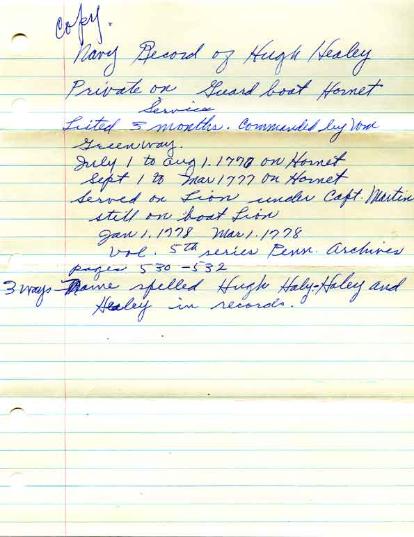 Copy.
Navy Record of Hugh Healey
Private on Guard boat Hornet
Service
Listed 5 months. Commanded by Wm
Greenway.
July 1 to Aug 1. 1776 on Hornet
Sept 1 to Mar 1777 on Hornet
Served on Lion under Capt. Martin
still on boat Lion
Jan 1. 1778 Mar 1. 1778
Vol. 5th series Penn. Archives
pages 530-532
3 ways - Name spelled Hugh Haly-Haley and
Healey in records.